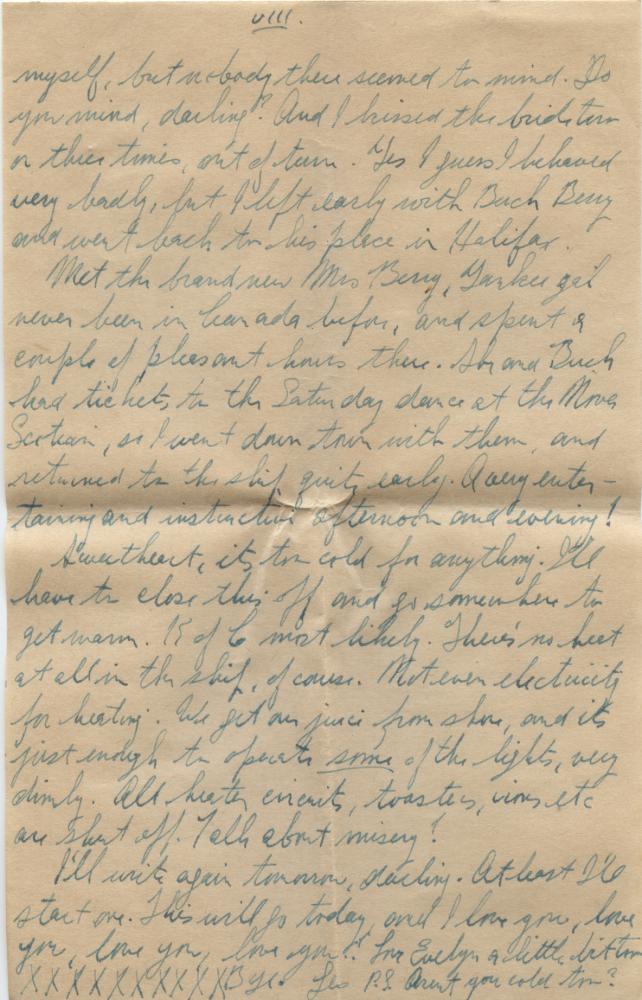 viii.
myself, but nobody there seemed to mind. Do
you mind, darling? And I kissed the bride two
or three times, out of turn. Yes I guess I behaved
very badly, but I left early with Buck Berry
and went back to his place in Halifax.
Met the brand new Mrs Berry, Yankee gal
never been in Canada before, and spent a
couple of pleasant hours there. She and Buck
had tickets to the Saturday dance at the Nova
Scotian, so I went down town with them, and
returned to the ship quite early. A very enter-
taining and instructive afternoon and evening!
Sweetheart, its too cold for anything. I'll
have to close this off and go somewhere to
get warm. K of C most likely. There's no heat
at all in the ship, of course. Not even electricity
for heating. We get our juice from shore, and its
just enough to operate some of the lights, very
dimly. All heater circuits, toasters, irons etc
are shut off. Talk about misery!
I'll write again tomorrow, darling. At least I'll
start one. This will go today, and I love you, love
you, love you, love you!! Love Evelyn a little bit too
XXXXXXXXXX Bye. Les P.S. Aren't you cold too?